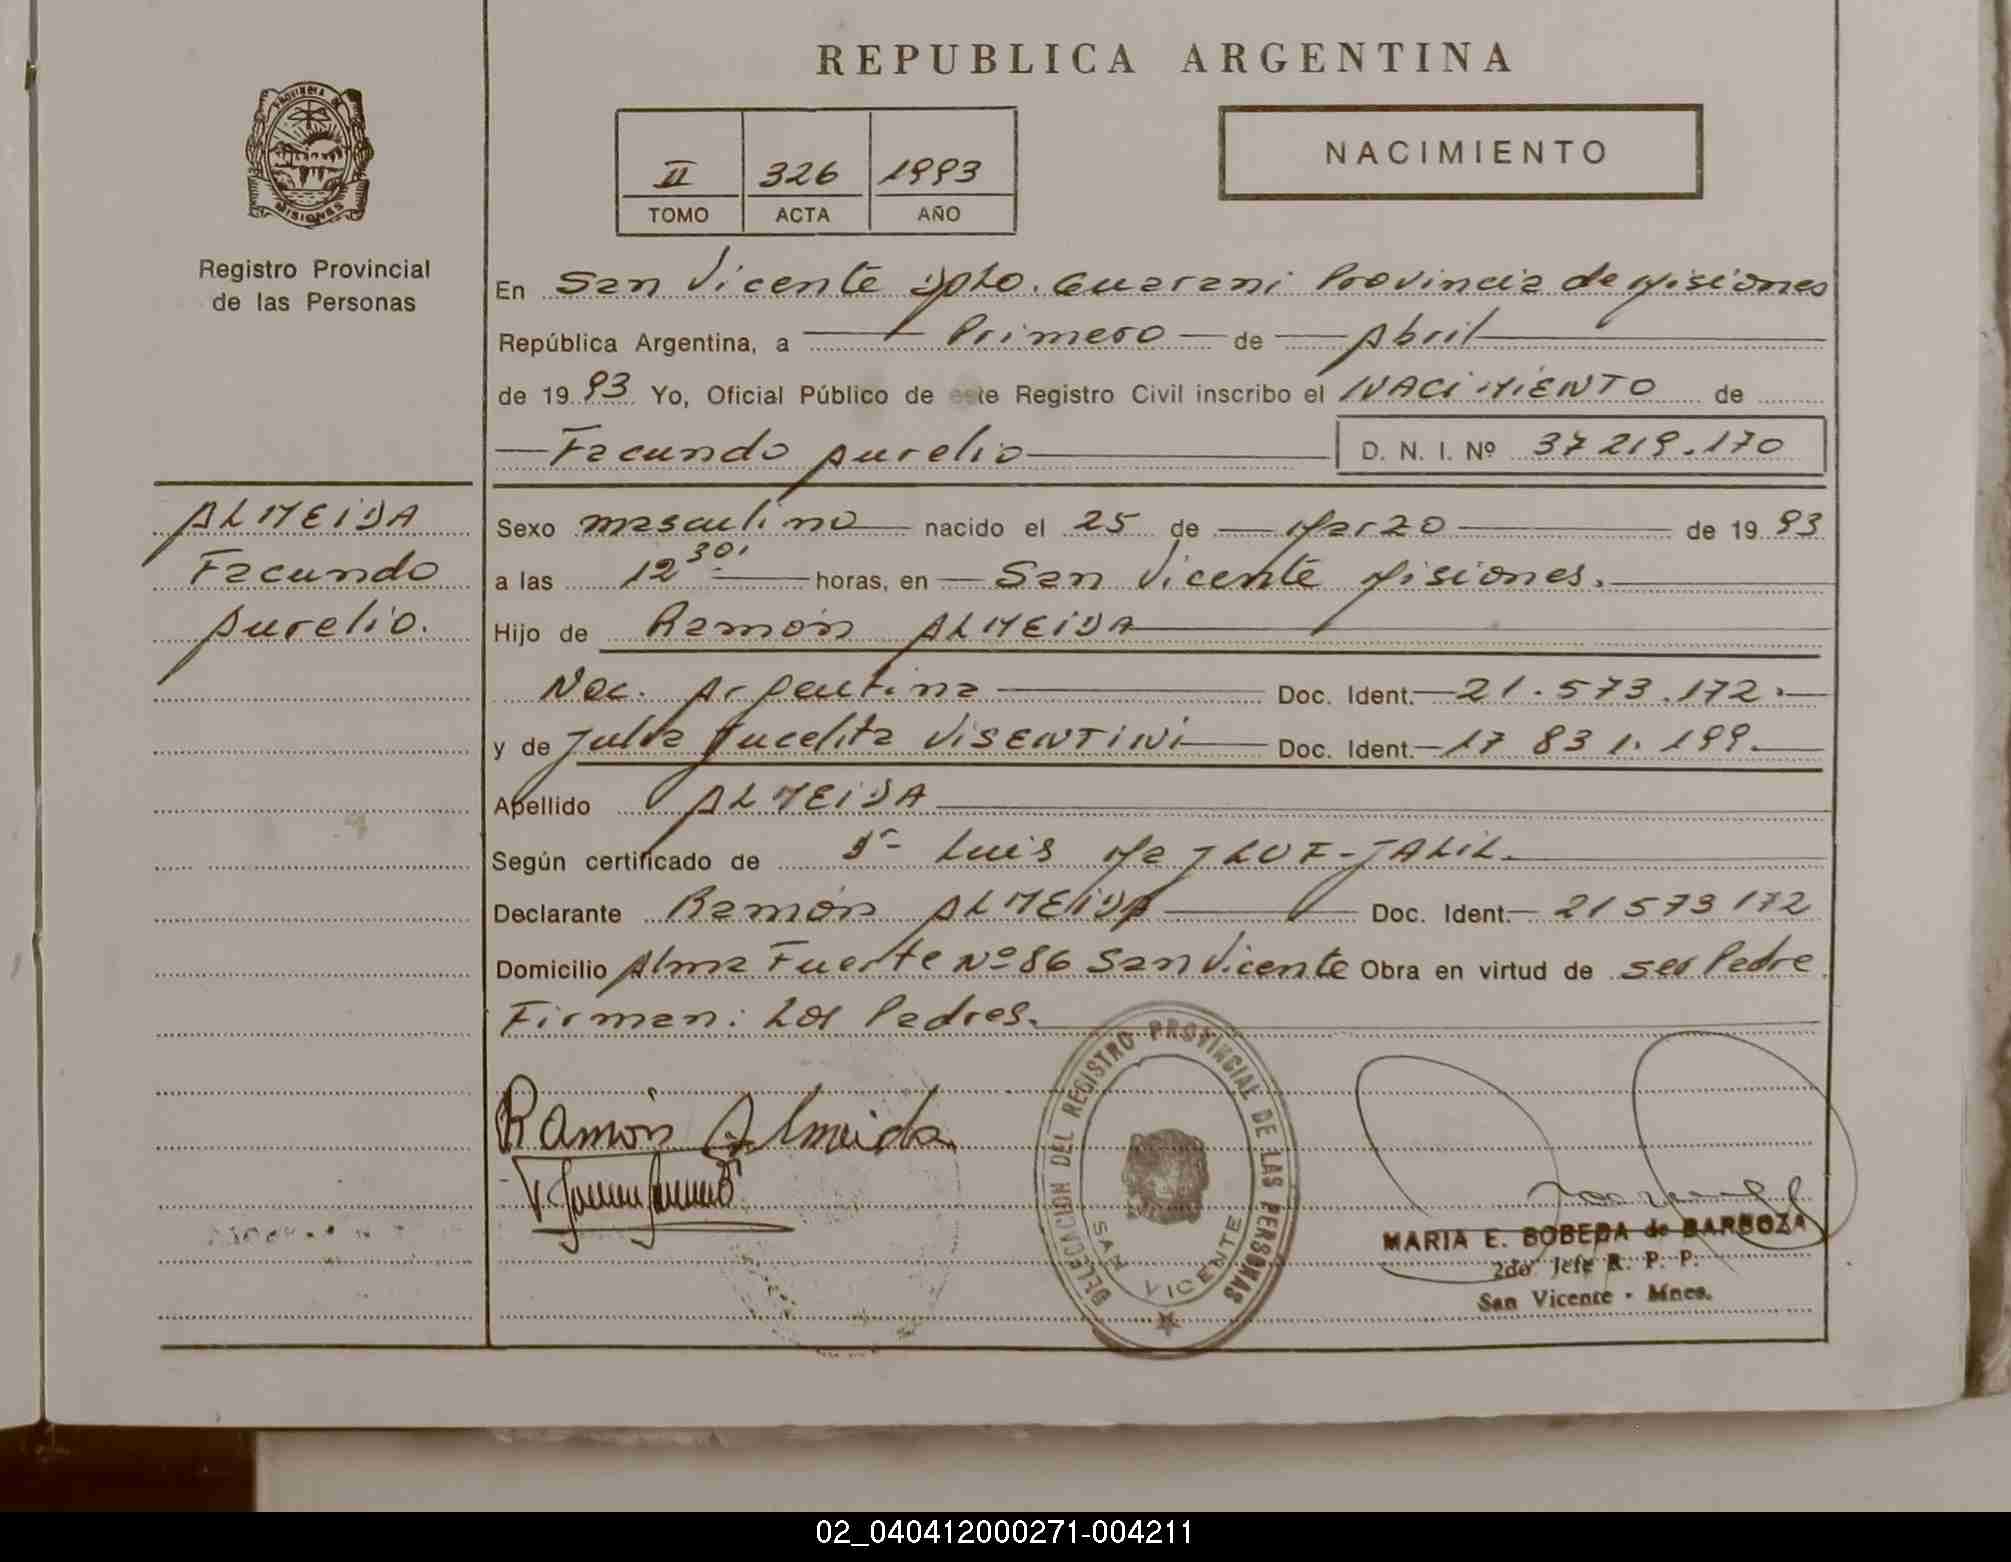 REPUBLICA ARGENTINA
PROVINCIA DE
MISIONES
Registro Provincial
de las Personas
II 326 1993
TOMO ACTA AÑO
NACIMIENTO
En San Vicente Dpto. Guarani Provincia de Misiones
República Argentina, a Primero de Abril
de 1993 Yo, Oficial Público de este Registro Civil inscribo el NACIMIENTO de
Facundo Aurelio D. N. I. Nº 37 219.170
ALMEIDA
Facundo
Aurelio.
Sexo masculino nacido el 25 de Marzo de 1993
a las 12 30' horas, en San Vicente Misiones.
Hijo de Ramón ALMEIDA
Nac. Argentina Doc. Ident. 21.573.172.
y de Julia Jucelita VISENTINI Doc. Ident. 17 831.199.
Apellido ALMEIDA
Según certificado de Dr Luis JALIL.
Declarante Ramón ALMEIDA Doc. Ident. 21573172
Domicilio Alma Fuerte Nº 86 San Vicente Obra en virtud de ser Padre
Firman: Los Padres.
Ramón Almeida
DELEGACION DEL REGISTRO PROVINCIAL DE LAS PERSONAS
SAN VICENTE
MARIA E. BOBEDA de BARBOZA
2do Jefe R. P. P.
San Vicente - Mnes.
02_040412000271-004211